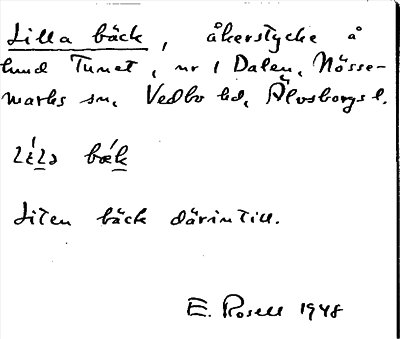 Lilla bäck, åkerstycke å
lund Tunet, nr 1 Dalen, Nösse-
marks sn, Vedbo hd, Älvsborgs l.
lı̍lə bæ̍k
Liten bäck därintill.
E. Rosell 1948